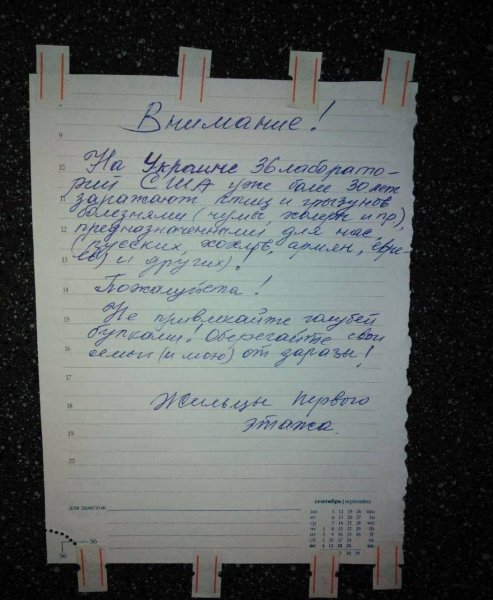 Внимание!
На Украине 36 лаборато-
рий США уже более 30 лет
заражают птиц и грызунов
болезнями (чумы, холеры и пр),
предназначенными для нас
(русских, хохлов, армян, евре-
ев) и других).
Пожалуйста!
Не привлекайте голубей
булками! Оберегайте свои
семьи (и мою) от заразы!
Жильцы первого
этажа.
9
10
11
12
13
14
15
16
17
18
19
20
для заметок
сентябрь september
36
36